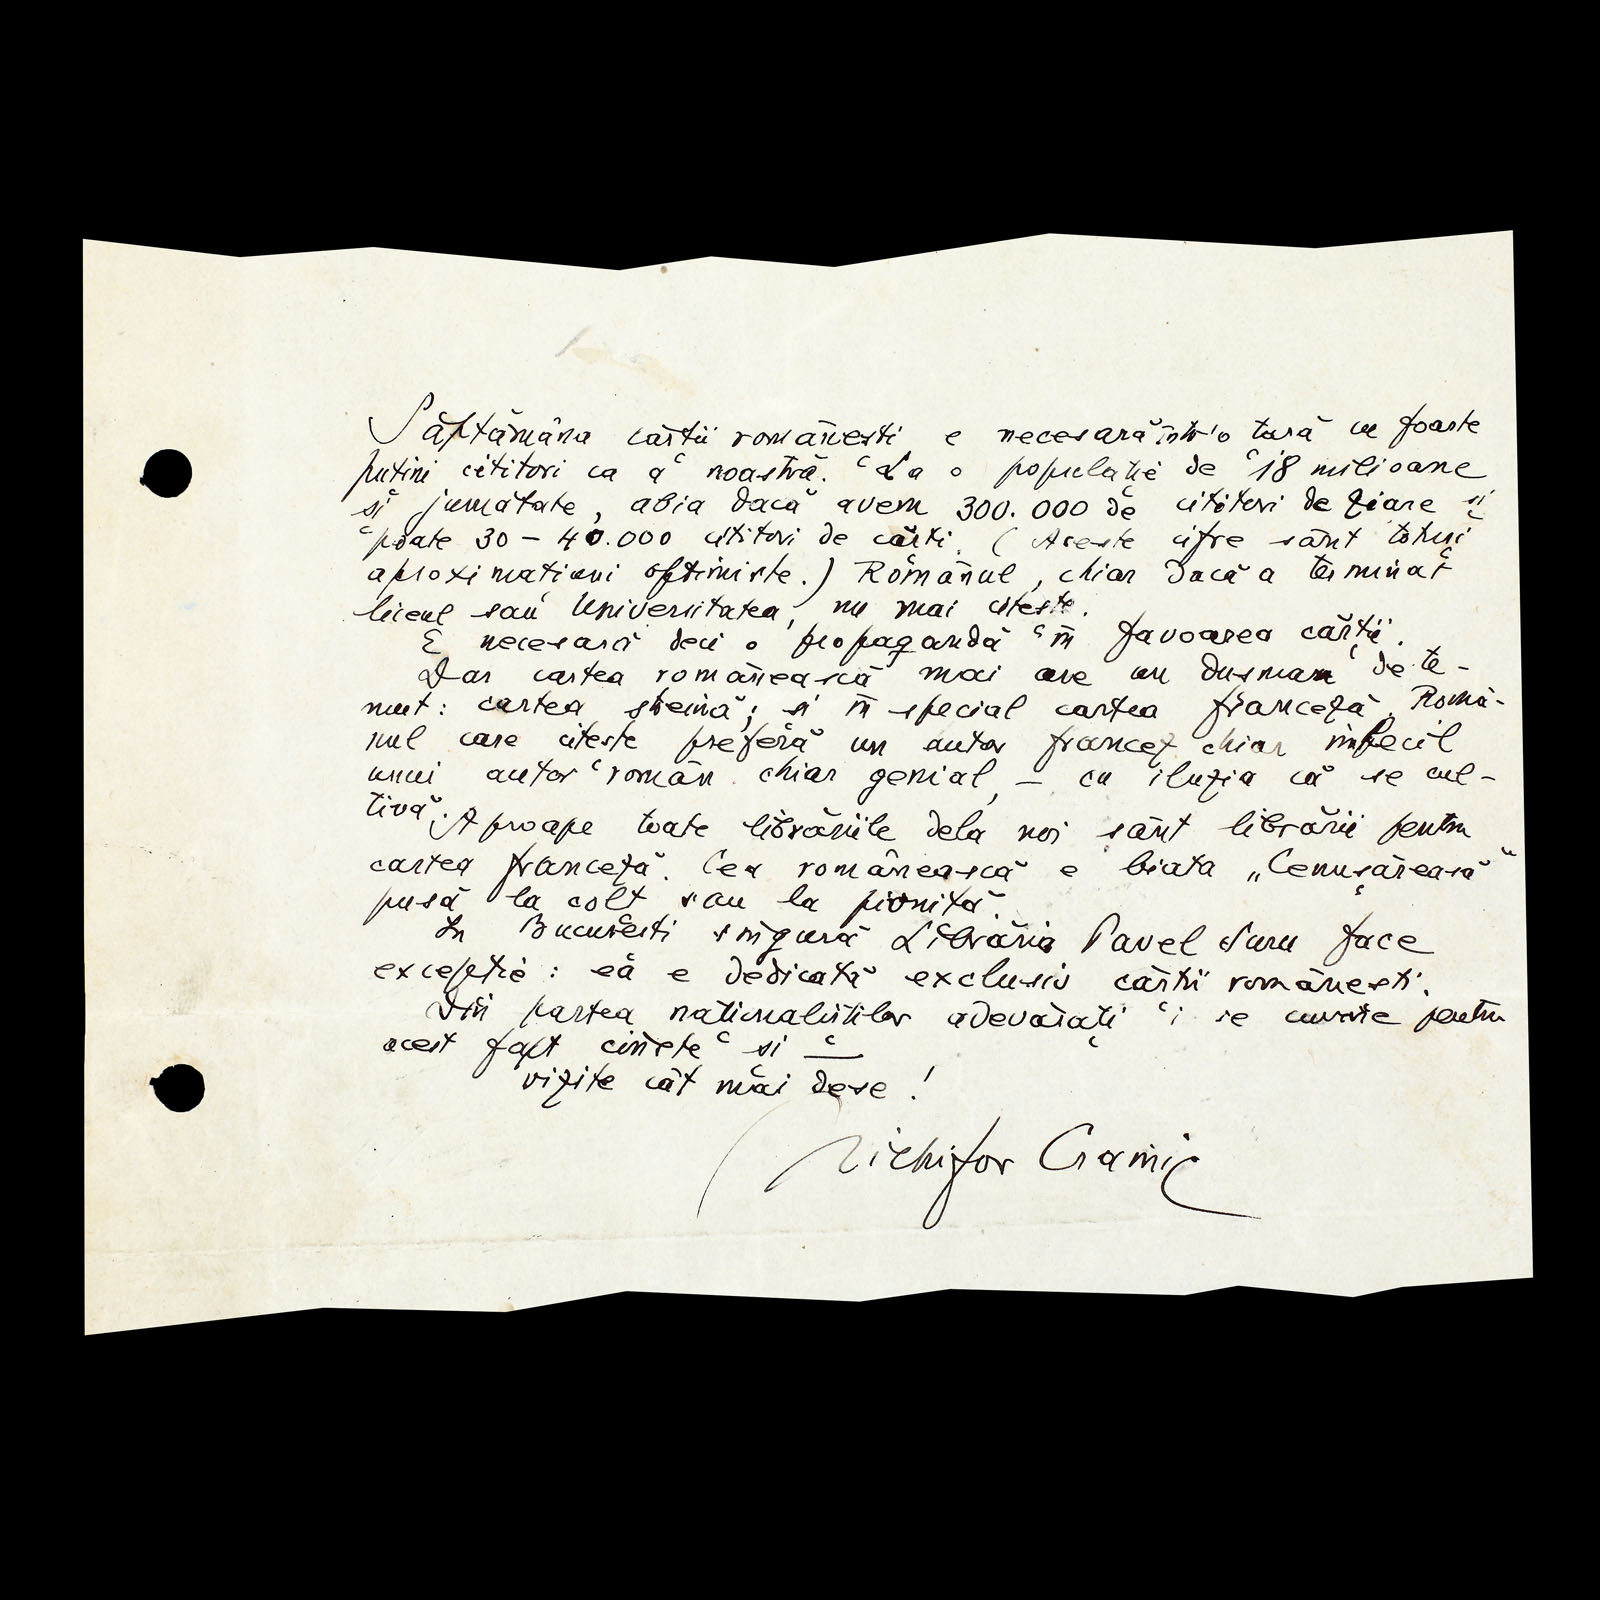 Săptămâna cărții românești e necesară într'o țară cu foarte
puțini cititori ca a noastră. La o populație de 18 milioane
și jumătate, abia dacă avem 300.000 de cititori de ziare și
poate 30 – 40.000 cititori de cărți. (Aceste cifre sânt totuși
aproximațiuni optimiste.) Românul, chiar dacă a terminat
liceul sau Universitatea, nu mai citește.
E necesară deci o propagandă în favoarea cărții.
Dar cartea românească mai are un dușman de te-
mut: cartea streină; și în special cartea franceză. Româ-
nul care citește preferă un autor francez chiar imbecil
unui autor român chiar genial, – cu iluzia că se cul-
tivă.
Aproape toate librăriile dela noi sânt librării pentru
cartea franceză. Cea românească e biata „Cenușăreasă"
pusă la colț sau la pivniță.
In București singură Librăria Pavel Suru face
excepție: ea e dedicată exclusiv cărții românești.
Din partea naționaliștilor adevărați i se cuvine pentru
acest fapt cinste și —
vizite cât mai dese!
Nichifor Crainic